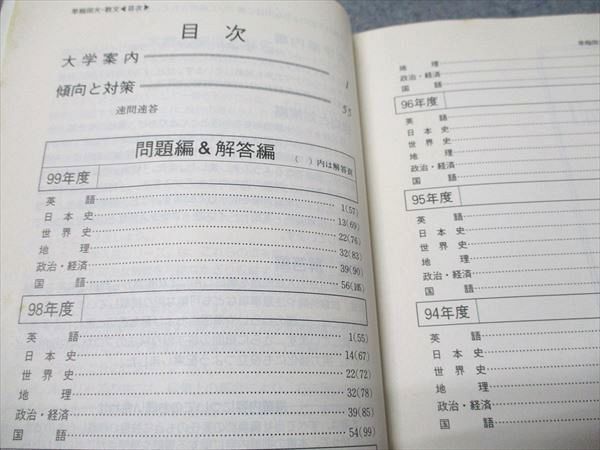 早稲田大-教文◀目次▶
目次
大学案内 1
傾向と対策 55
速問速答
問題編&解答編 ( )内は解答頁
99年度
英語 1(57)
日本史 13(69)
世界史 22(76)
地理 32(83)
政治・経済 39(90)
国語 56(105)
98年度
英語 1(55)
日本史 14(67)
世界史 22(72)
地理 32(78)
政治・経済 39(85)
国語 54(99)
早稲田大
地理
政治・経済
国語
96年度
英語
日本史
世界史
地理
政治・経済
国語
95年度
英語
日本史
世界史
地理
政治・経済
国語
94年度
英語
日本史
世界史
地理
政治・経済
国語